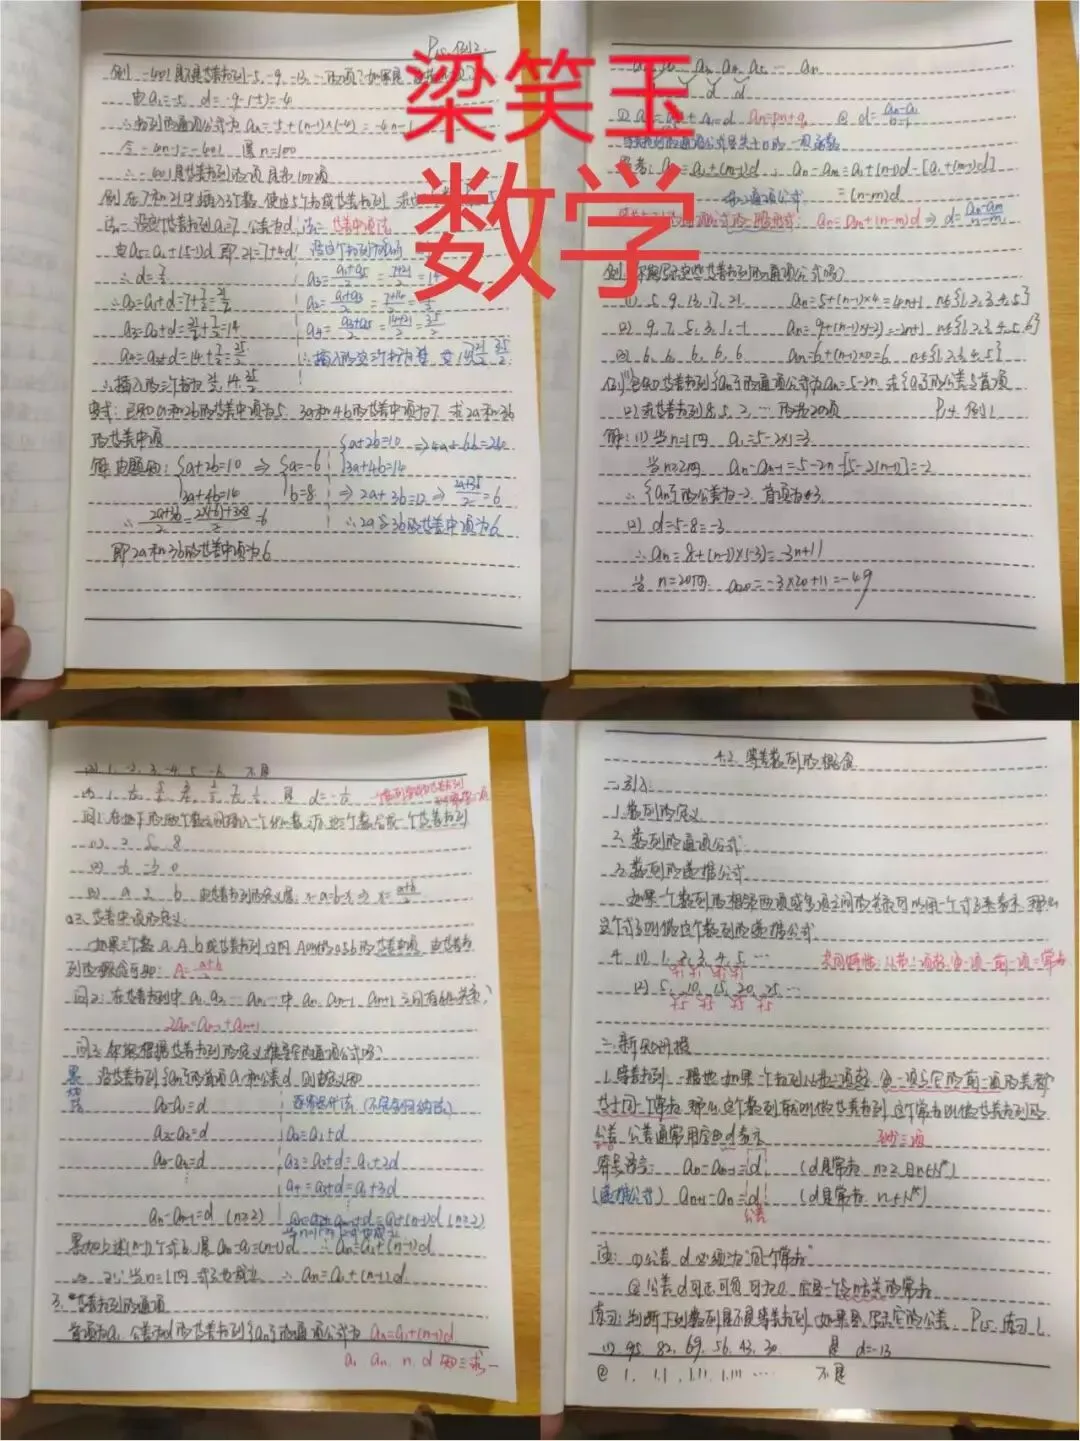 梁笑玉
数学
P15 例2
例1 -401是不是等差数列-5,-9,-13,…的项?如果是,
由a₁=-5 d=-9-(-5)=-4
∴数列的通项公式为 aₙ=-5+(n-1)×(-4)=-4n-1
令-4n-1=-401 得n=100
∴-401是等差数列的项 是第100项
例 在7和21中插入3个数,使这5个数成等差数列
法一 设这个等差数列a₁=7 公差为d
由a₅=a₁+(5-1)d 即21=7+4d
∴d=7/2
∴a₂=a₁+d=7+7/2=21/2
a₃=a₂+d=21/2+7/2=14
a₄=a₃+d=14+7/2=35/2
法二 等差中项法
设这个数列为{aₙ}
a₃=(a₁+a₅)/2=(7+21)/2=14
a₂=(a₁+a₃)/2=(7+14)/2=21/2
a₄=(a₃+a₅)/2=(14+21)/2=35/2
变式:已知a和2b的等差中项为5,3a和4b的等差中项为7,求2a和3b
的等差中项
解 由题知:{a+2b=10 ⇒ {a=-6
3a+4b=14 b=8
∴(2a+3b)/2=(2×(-6)+3×8)/2=6
即2a和3b的等差中项为6
{a+2b=10 ⇒4a+6b=24
3a+4b=14
⇒2a+3b=12⇒(2a+3b)/2=6
∴2a与3b的等差中项为6
aₙ=pn+q ② d=(aₙ-a₁)/(n-1)
思考:aₙ=a₁+(n-1)d, aₙ-aₘ=a₁+(n-1)d-[a₁+(m-1)d]
=(n-m)d
aₙ=aₘ+(n-m)d⇒d=(aₙ-aₘ)/(n-m)
例 你能写出这些等差数列的通项公式吗?
(1) 5,9,13,17,21 aₙ=5+(n-1)×4=4n+1 n∈{1,2,3,4,5}
(2) 9,7,5,3,1,-1 aₙ=9+(n-1)×(-2)=-2n+11 n∈{1,2,3,4,5,6}
(3) 6,6,6,6,6 aₙ=6+(n-1)×0=6 n∈{1,2,3,4,5}
例(1)已知等差数列{aₙ}的通项公式为aₙ=5-2n 求{aₙ}的公差与首项
(2)求等差数列8,5,2,…的第20项 P14 例1
解:(1)当n=1时 a₁=5-2×1=3
当n≥2时 aₙ-aₙ₋₁=5-2n-[5-2(n-1)]=-2
∴{aₙ}的公差为-2 首项为3
(2) d=5-8=-3
∴aₙ=8+(n-1)×(-3)=-3n+11
当n=20时 a₂₀=-3×20+11=-49
(3) 1,-2,3,-4,5,-6 不是
问1:在如下的两个数之间插入一个什么数后,这三个数会成一个等差数列
(1) 2 5 8
(2) -6 -3 0
(3) a x b 由等差数列的定义是:x-a=b-x⇒x=(a+b)/2
2.等差中项的定义
如果三个数a,A,b成等差数列 这时A叫做a与b的等差中项 由等差数
列的概念可知:A=(a+b)/2
问2:在等差数列中 a₁,a₂…aₙ…中 aₙ,aₙ₋₁,aₙ₊₁之间有何关系?
2aₙ=aₙ₋₁+aₙ₊₁
问3:你能根据等差数列的定义推导它的通项公式吗?
累加法
设等差数列{aₙ}的首项a₁和公差d 则由定义知
a₂-a₁=d
a₃-a₂=d
a₄-a₃=d
⋮
aₙ-aₙ₋₁=d (n≥2)
逐项迭代法(不完全归纳法)
a₂=a₁+d
a₃=a₂+d=a₁+2d
a₄=a₃+d=a₁+3d
⋮
aₙ=aₙ₋₁+d=a₁+(n-1)d (n≥2)
累加上述(n-1)个式子,得aₙ-a₁=(n-1)d ∴aₙ=a₁+(n-1)d
又∵当n=1时 式子也成立 ∴aₙ=a₁+(n-1)d
3.等差数列的通项
首项为a₁ 公差为d的等差数列{aₙ}的通项公式为 aₙ=a₁+(n-1)d
a₁ aₙ n d 知三求一
4.2 等差数列的概念
一.引入
1.数列的定义
2.数列的通项公式
3.数列的递推公式
如果一个数列的相邻两项或多项之间的关系可以用一个式子来表示,那么
这个式子叫做这个数列的递推公式
4.(1) 1,2,3,4,5,…
+1 +1 +1 +1
(2) 5,10,15,20,25…
+5 +5 +5 +5
共同特性:从第二项起,每一项-前一项=常数
二.新知研探
1.等差数列 一般地 如果一个数列从第二项起 每一项与它的前一项的差都
等于同一个常数 那么这个数列就叫做等差数列 这个常数叫做等差数列的
公差 公差通常用字母d表示
至少三项
符号语言: aₙ-aₙ₋₁=d (d是常数 n≥2 且n∈N*)
(递推公式) aₙ₊₁-aₙ=d (d是常数 n∈N*)
公差
注: ①公差d必须为"同一个常数"
②公差d可正可负可为0,它是一个与n无关的常数
练习:判断下列数列是不是等差数列,如果是,写出它的公差. P15 练习1.
(1) 95,82,69,56,43,30 是 d=-13
② 1,1.1,1.11,1.111… 不是